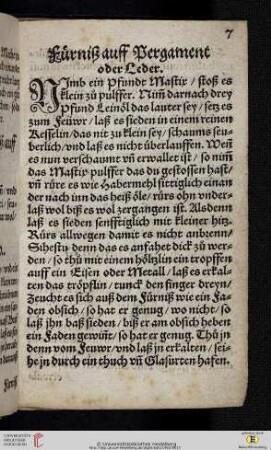 7
Fürniß auff Pergament
oder Leder.
NImb ein Pfundt Mastix / stoß es
klein zů pulffer. Nim̃ darnach drey
Pfund Leinöl das lauter sey / setz es
zum Feüwr / laß es sieden in einem reinen
Kesselin / das nit zů klein sey / schaums seu-
berlich / vnd laß es nicht überlauffen. Weñ
es nun verschaumt vñ erwallet ist / so nim̃
das Mastix pulffer das du gestossen hast /
vñ rüre es wie Habermehl sittiglich einan
der nach inn das heiß öle / rürs ohn vnder-
laß wol biß es wol zergangen ist. Alsdenn
laß es sieden senfftiglich mit kleiner hitz.
Rürs allwegen damit es nicht anbrenn /
Sihestu denn das es anfahet dick zů wer-
den / so thů mit einem höltzlin ein tropffen
auff ein Eisen oder Metall / laß es erkal-
ten das tröpflin / tunck den finger dreyn /
Zeucht es sich auß dem Fürniß wie ein Fa-
den obsich / so hat er genug / wo nicht / so
laß jhn baß sieden / biß er am obsich heben
ein Faden gewiñt / so hat er genug. Thů jn
denn vom Feuwr / vnd laß jn erkalten / sei-
he jn durch ein thuch vñ Glasurten hafen.
UNIVERSITÄTS-
BIBLIOTHEK
HEIDELBERG
© Universitätsbibliothek Heidelberg